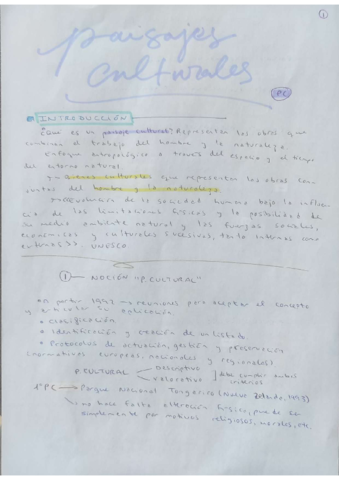 1
paisajes
culturales
PC
INTRODUCCIÓN
¿Qué es un paisaje cultural? Representan las obras que
combinan el trabajo del hombre y la naturaleza.
enfoque antropológico a través del espacio y el tiempo
del entorno natural
"Bienes culturales que representan las obras con-
juntas del hombre y la naturaleza
de la sociedad humana bajo la influen-
cia de las limitaciones físicas y la posibilidad de
su medio ambiente natural y las fuerzas sociales,
económicas y culturales sucesivas, tanto internas como
externas >> UNESCO
1 NOCIÓN "P. CULTURAL"
A partir 1992 reuniones para aceptar el concepto
y su aplicación
• Clasificación
• Identificación y creación de un listado
• Protocolos de actuación, gestión y preservación
(normativas europeas, nacionales y regionales)
P. CULTURAL Descriptivo
Valorativo
debe cumplir ambos
criterios
1º PC Parque Nacional Tongariro (Nueva Zelanda, 1993)
no hace falta alteración física, puede ser
simplemente por motivos religiosos, morales, etc.